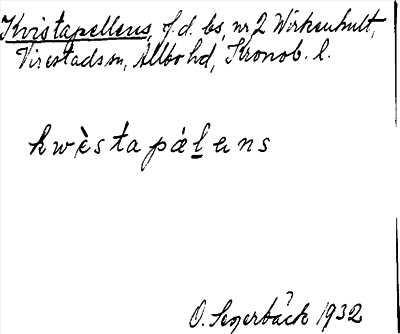 Kvistapellens, f.d. bs, nr 2 Wirkenhult,
Virestads sn, Allbo hd, Kronob. l.
kwèstapáḻens
O. Segerbäck 1932